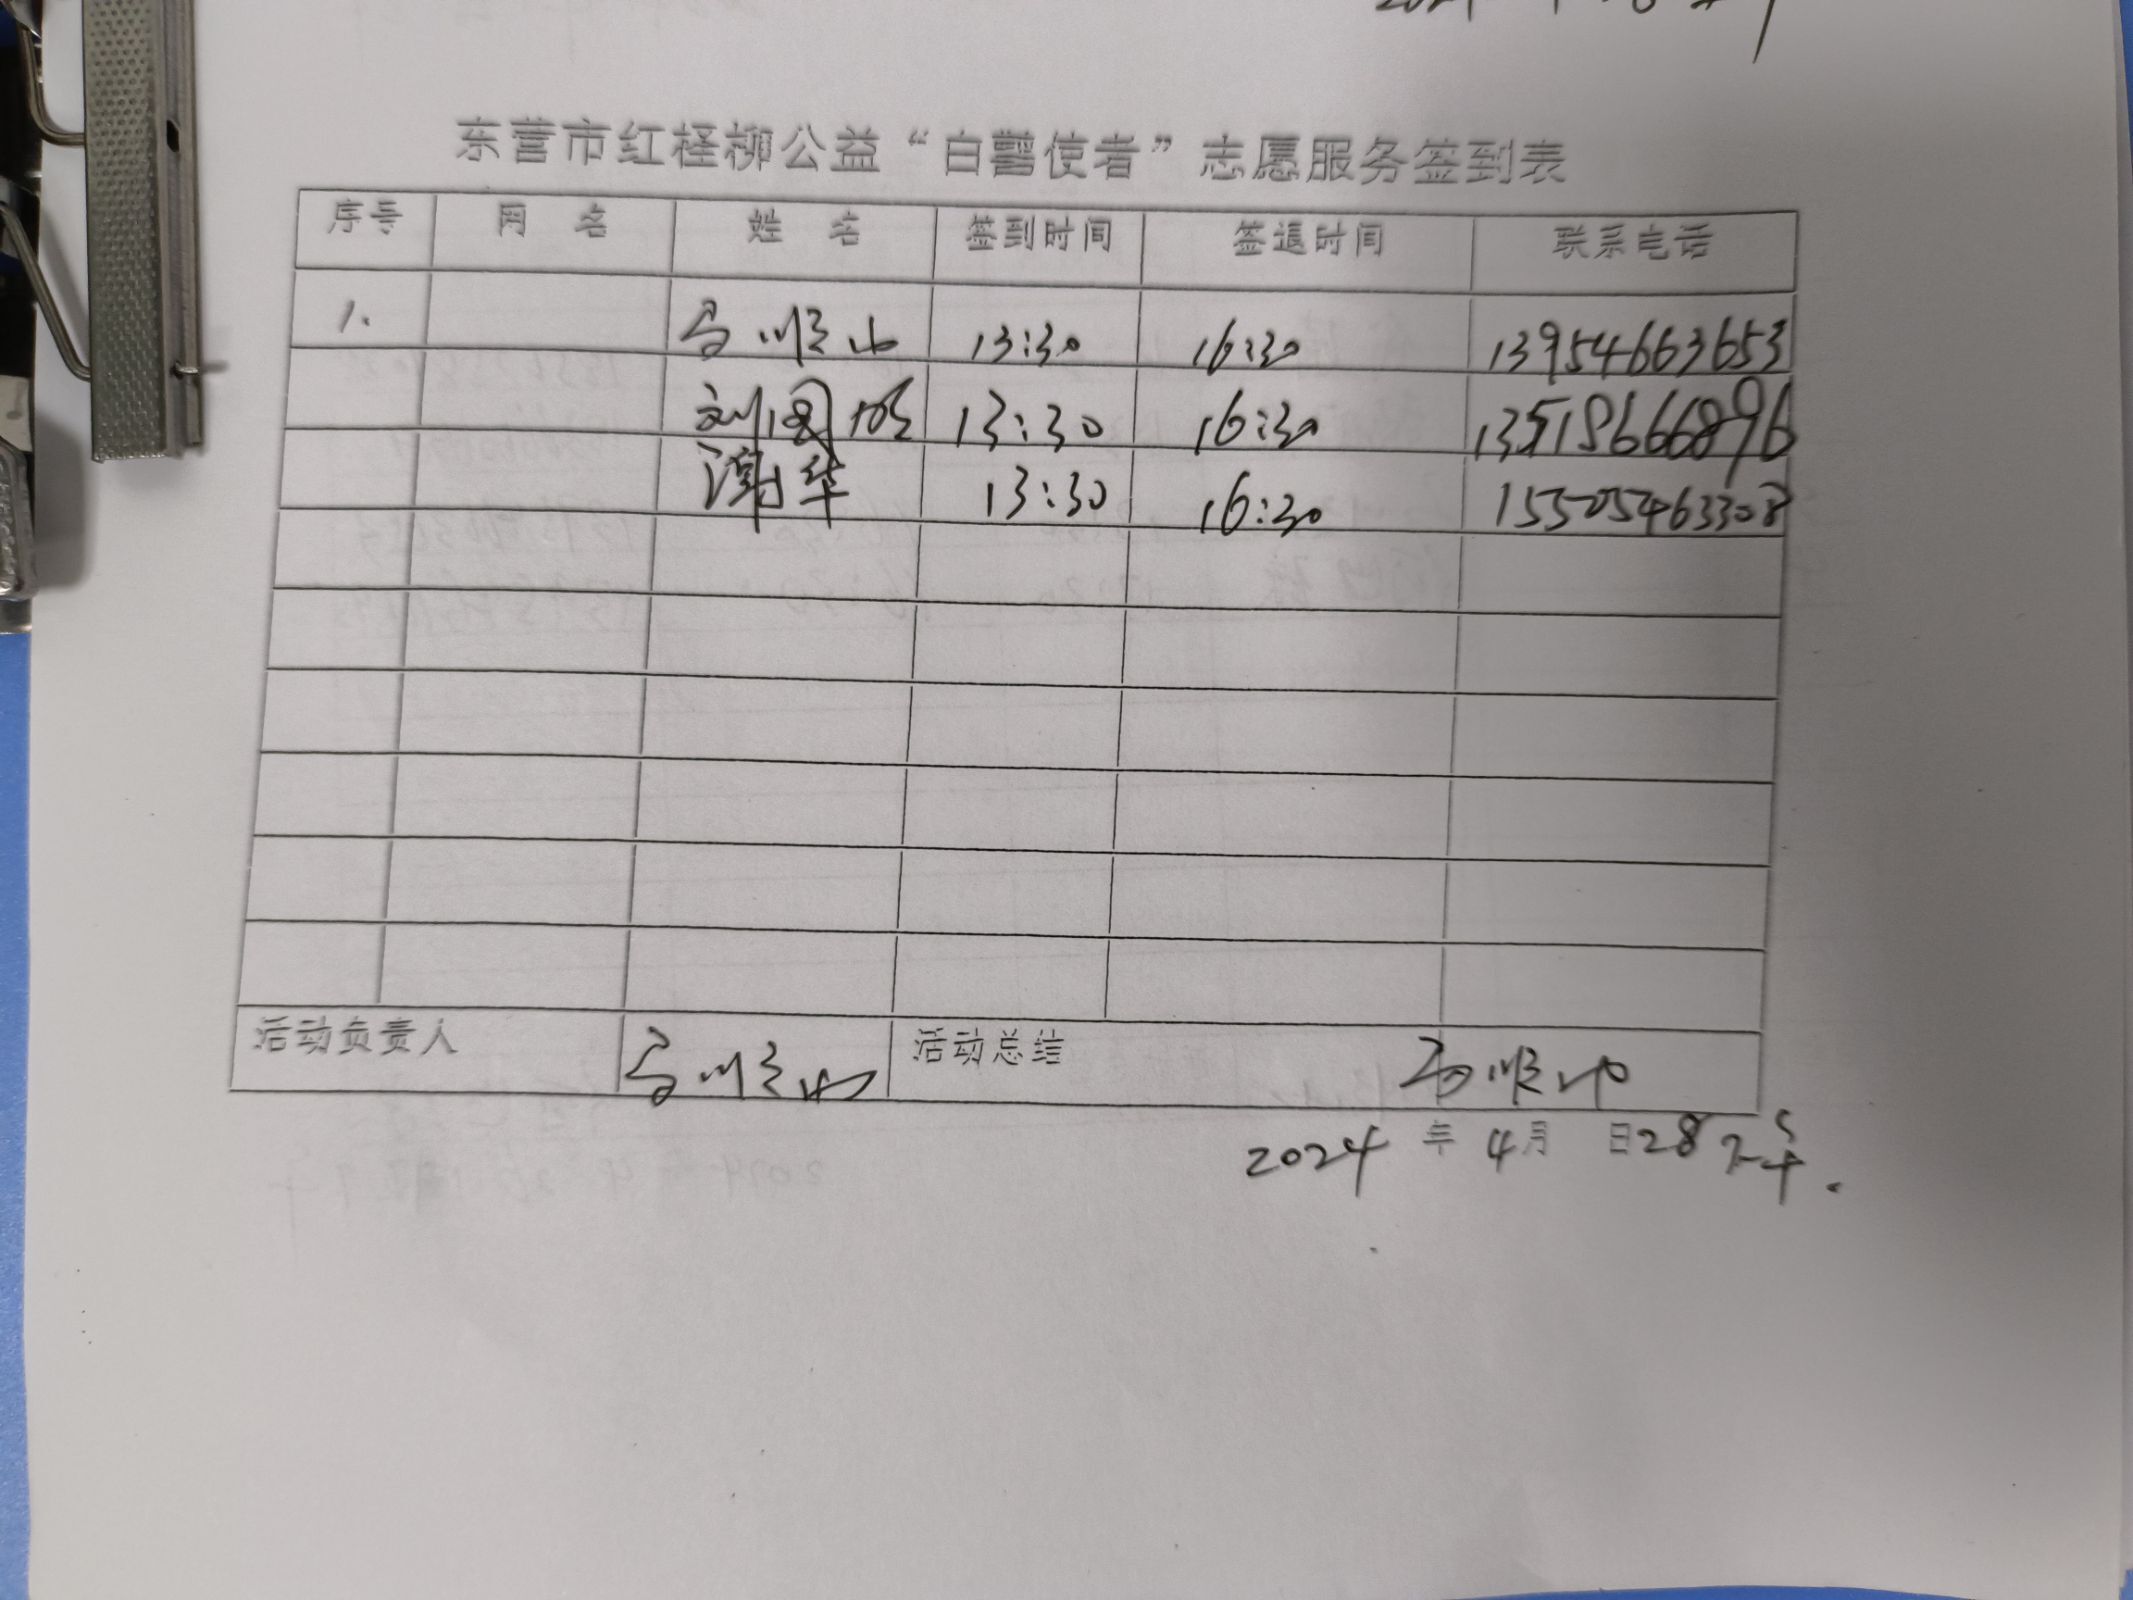 东营市红柽柳公益“白鹭使者”志愿服务签到表
序号 网 名 姓 名 签到时间 签退时间 联系电话
1. 马顺山 13:30 16:30 13954663653
刘国明 13:30 16:30 13518666896
谢华 13:30 16:30 15505463308
活动负责人 马顺山 活动总结 马顺山
2024 年 4月 日28 下午.